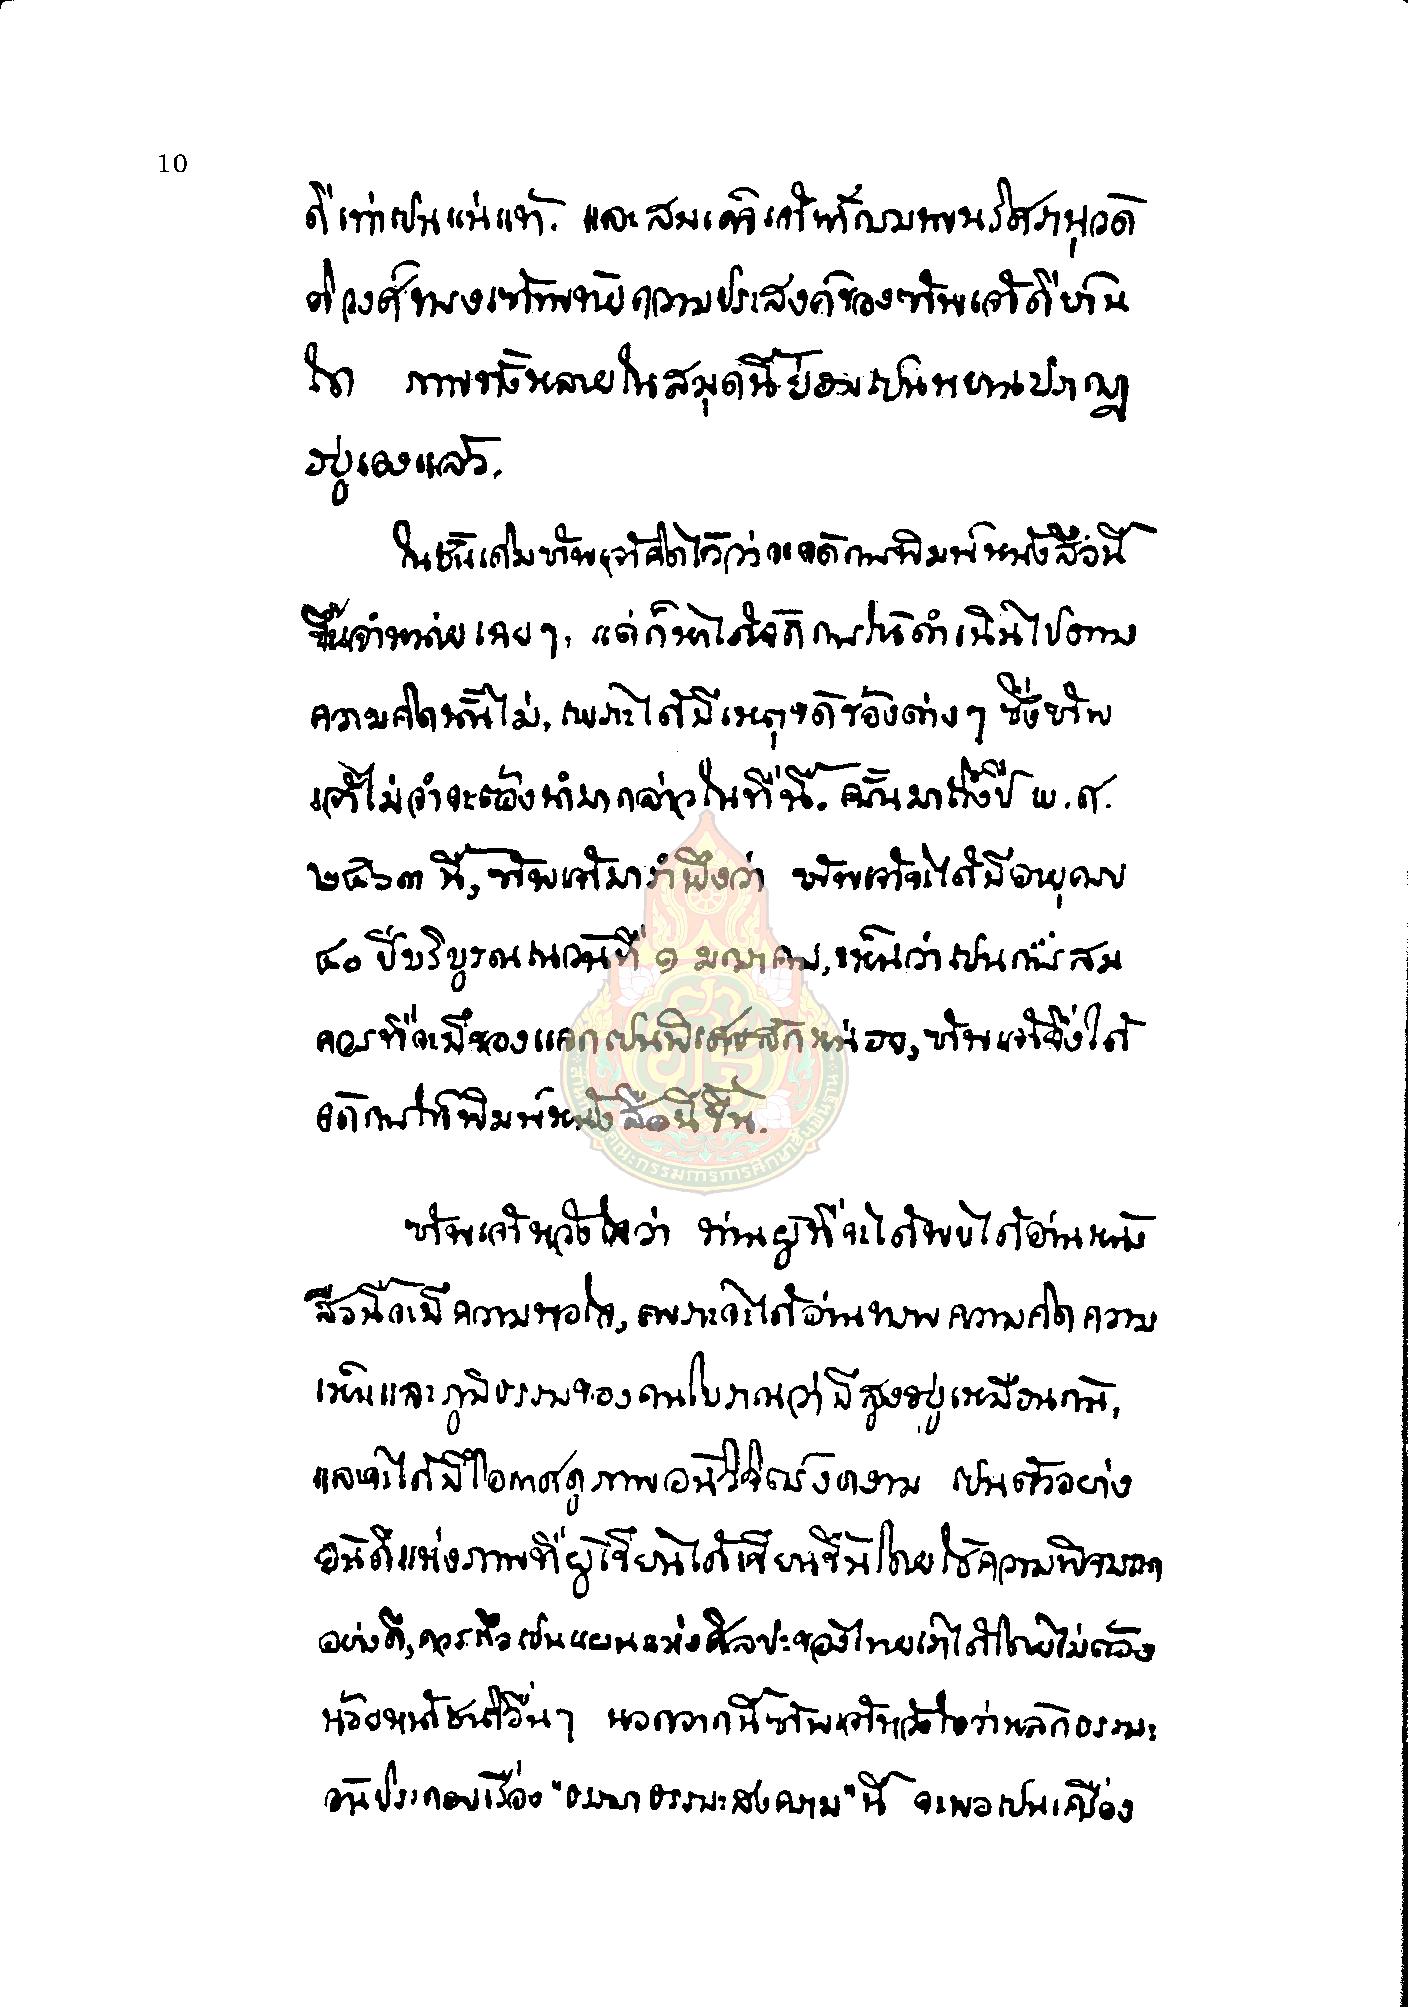 10
ดีเท่าเปนแน่แท้. และสมเด็จเจ้าฟ้ากรมพระนริศรานุวัด
ติวงศ์ทรงเข้าพระทัยความประสงค์ของข้าพเจ้าดีปานใด
ใด ภาพทั้งหลายในสมุดนี้ย่อมเปนพยานปรากฎ
อยู่เองแล้ว.
ในชั้นเดิมข้าพเจ้าคิดไว้ว่าจะจัดการพิมพ์หนังสือนี้
ขึ้นจำหน่ายเฉยๆ, แต่ก็หาได้จัดการให้ดำเนินไปตาม
ความคิดนั้นไม่, เพราะได้มีเหตุขัดข้องต่างๆ ซึ่งข้าพ
เจ้าไม่จำจะต้องนำมากล่าวในที่นี้. ครั้นมาถึงปี พ.ศ.
๒๔๖๓ นี้, ข้าพเจ้ามารำพึงว่า ข้าพเจ้าจะได้มีอายุครบ
๔๐ ปีบริบูรณในวันที่ ๑ มกราคม, เห็นว่าเปนการสม
ควรที่จะมีของแจกเปนพิเศษสักหน่อย, ข้าพเจ้าจึ่งได้
จัดการให้พิมพ์หนังสือนี้ขึ้น.
ข้าพเจ้าหวังใจว่า ท่านผู้ที่จะได้พบได้อ่านหนัง
สือนี้จะมีความพอใจ, เพราะจะได้อ่านทราบความคิดความ
เห็นและภูมิธรรมของคนโบราณว่ามีสูงอยู่เหมือนกัน,
และจะได้มีโอกาศดูภาพอันวิจิตร์งดงาม เปนตัวอย่าง
อันดีแห่งภาพที่ผู้เขียนได้เขียนขึ้นโดยใช้ความพิจารณา
อย่างดี, ควรถือเปนแผนแห่งศิลปะของไทยเราได้โดยไม่ต้อง
น้อยหน้าชาติอื่นๆ นอกจากนี้ข้าพเจ้าหวังใจว่าหลักธรรมะ
อันประกอบเรื่อง "ธรรมาธรรมะสงคราม" นี้ จะพอเปนเครื่อง